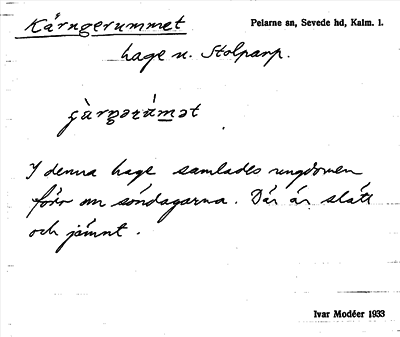 Kärngerummet
Pelarne sn, Sevede hd, Kalm. l.
hage u. Stolparp.
I denna hage samlades ungdomen
förr om söndagarna. Där är slätt
och jämnt.
Ivar Modéer 1933